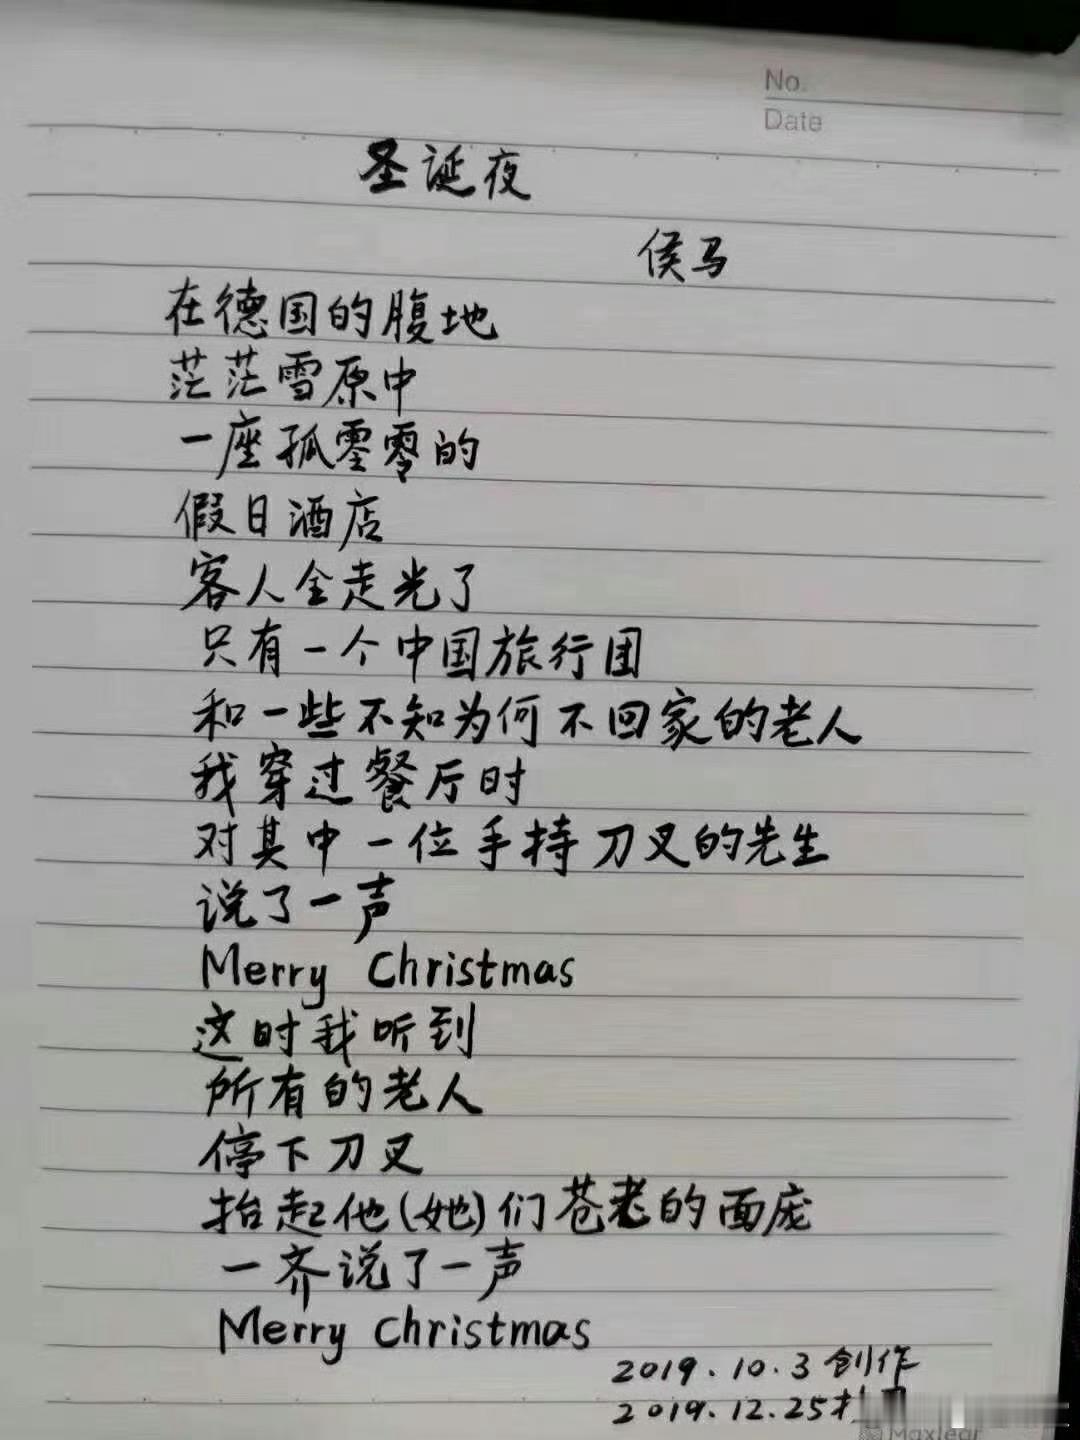 No.
Date
圣诞夜
侯马
在德国的腹地
茫茫雪原中
一座孤零零的
假日酒店
客人全走光了
只有一个中国旅行团
和一些不知为何不回家的老人
我穿过餐厅时
对其中一位手持刀叉的先生
说了一声
Merry Christmas
这时我听到
所有的老人
停下刀叉
抬起他(她)们苍老的面庞
一齐说了一声
Merry Christmas
2019.10.3创作
2019.12.25
Maxleaf